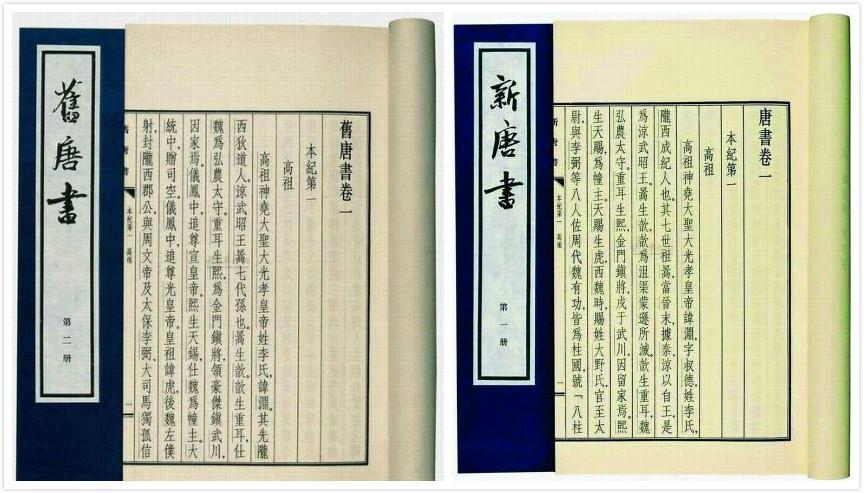 舊唐書
第二册
舊唐書卷一
本紀第一
高祖
高祖神堯大聖大光孝皇帝姓李氏,諱淵。其先隴
西狄道人,涼武昭王暠七代孫也。暠生歆。歆生重耳,仕
魏爲弘農太守。重耳生熙,爲金門鎮將,領豪傑鎮武川,
因家焉。儀鳳中,追尊宣皇帝。熙生天錫,仕魏爲幢主。大
統中,贈司空。儀鳳中,追尊光皇帝。皇祖諱虎,後魏左僕
射,封隴西郡公,與周文帝及太保李弼、大司馬獨孤信
舊唐書
本紀第一 高祖
一
新唐書
第一册
唐書卷一
本紀第一
高祖
高祖神堯大聖大光孝皇帝諱淵,字叔德,姓李氏,
隴西成紀人也。其七世祖暠,當晉末,據秦、涼以自王,是
爲涼武昭王。暠生歆,歆爲沮渠蒙遜所滅。歆生重耳,魏
弘農太守。重耳生熙,金門鎮將,戍于武川,因留家焉。熙
生天賜,爲幢主。天賜生虎,西魏時,賜姓大野氏,官至太
尉,與李弼等八人佐周代魏有功,皆爲柱國,號「八柱
新唐書
本紀第一 高祖
一